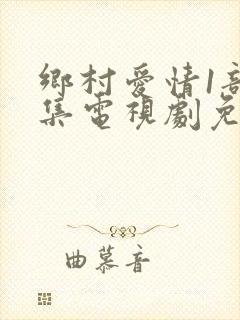 鄉村愛情1部
集電視劇免
曲慕音